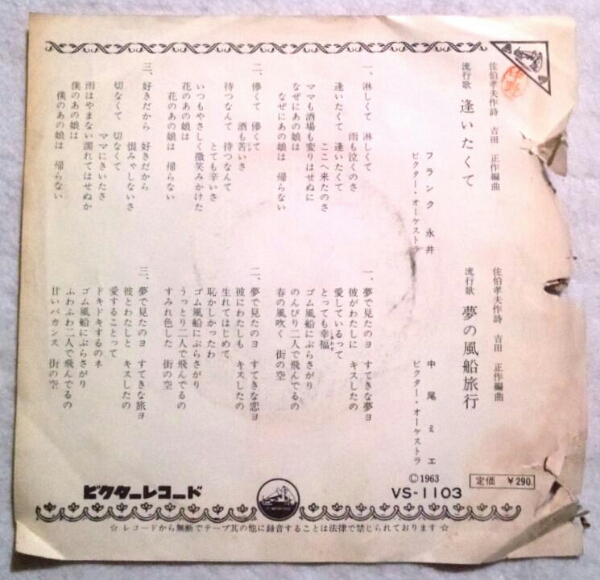 佐伯孝夫作詩　吉田　正作編曲
流行歌　逢いたくて
フランク　永井
ビクター・オーケストラ
一、淋しくて　淋しくて
雨も泣くのさ
逢いたくて　逢いたくて
ここへ来たのさ
ママも酒場も変りはせぬに
なぜにあの娘は　帰らない
なぜにあの娘は　帰らない
二、儚くて　儚くて
酒も苦いさ
待つなんて　待つなんて
とても辛いさ
いつもやさしく微笑みかけた
花のあの娘は　帰らない
花のあの娘は　帰らない
三、好きだから　好きだから
恨みやしないさ
切なくて　切なくて
ママにきいたさ
雨はやまない濡れてはせぬか
僕のあの娘は　帰らない
僕のあの娘は　帰らない
佐伯孝夫作詩　吉田　正作編曲
流行歌　夢の風船旅行
中尾ミエ
ビクター・オーケストラ
一、夢で見たのヨ　すてきな夢ヨ
彼がわたしに　キスしたの
愛しているって
とっても幸福
ゴム風船にぶらさがり
のんびり二人で飛んでるの
春の風吹く　街の空
二、夢で見たのヨ　すてきな恋ヨ
彼にわたしも　キスしたの
生れてはじめて
恥かしかったわ
ゴム風船にぶらさがり
うっとり二人で飛んでるの
すみれ色した　街の空
三、夢で見たのヨ　すてきな旅ヨ
彼とわたしと　キスしたの
愛することって
ドキドキするのネ
ゴム風船にぶらさがり
ふわふわ二人で飛んでるの
甘いバカンス　街の空
ビクターレコード
©1963
VS-1103
定価　¥290.
☆ レコードから無断でテープ其の他に録音することは法律で禁じられております ☆